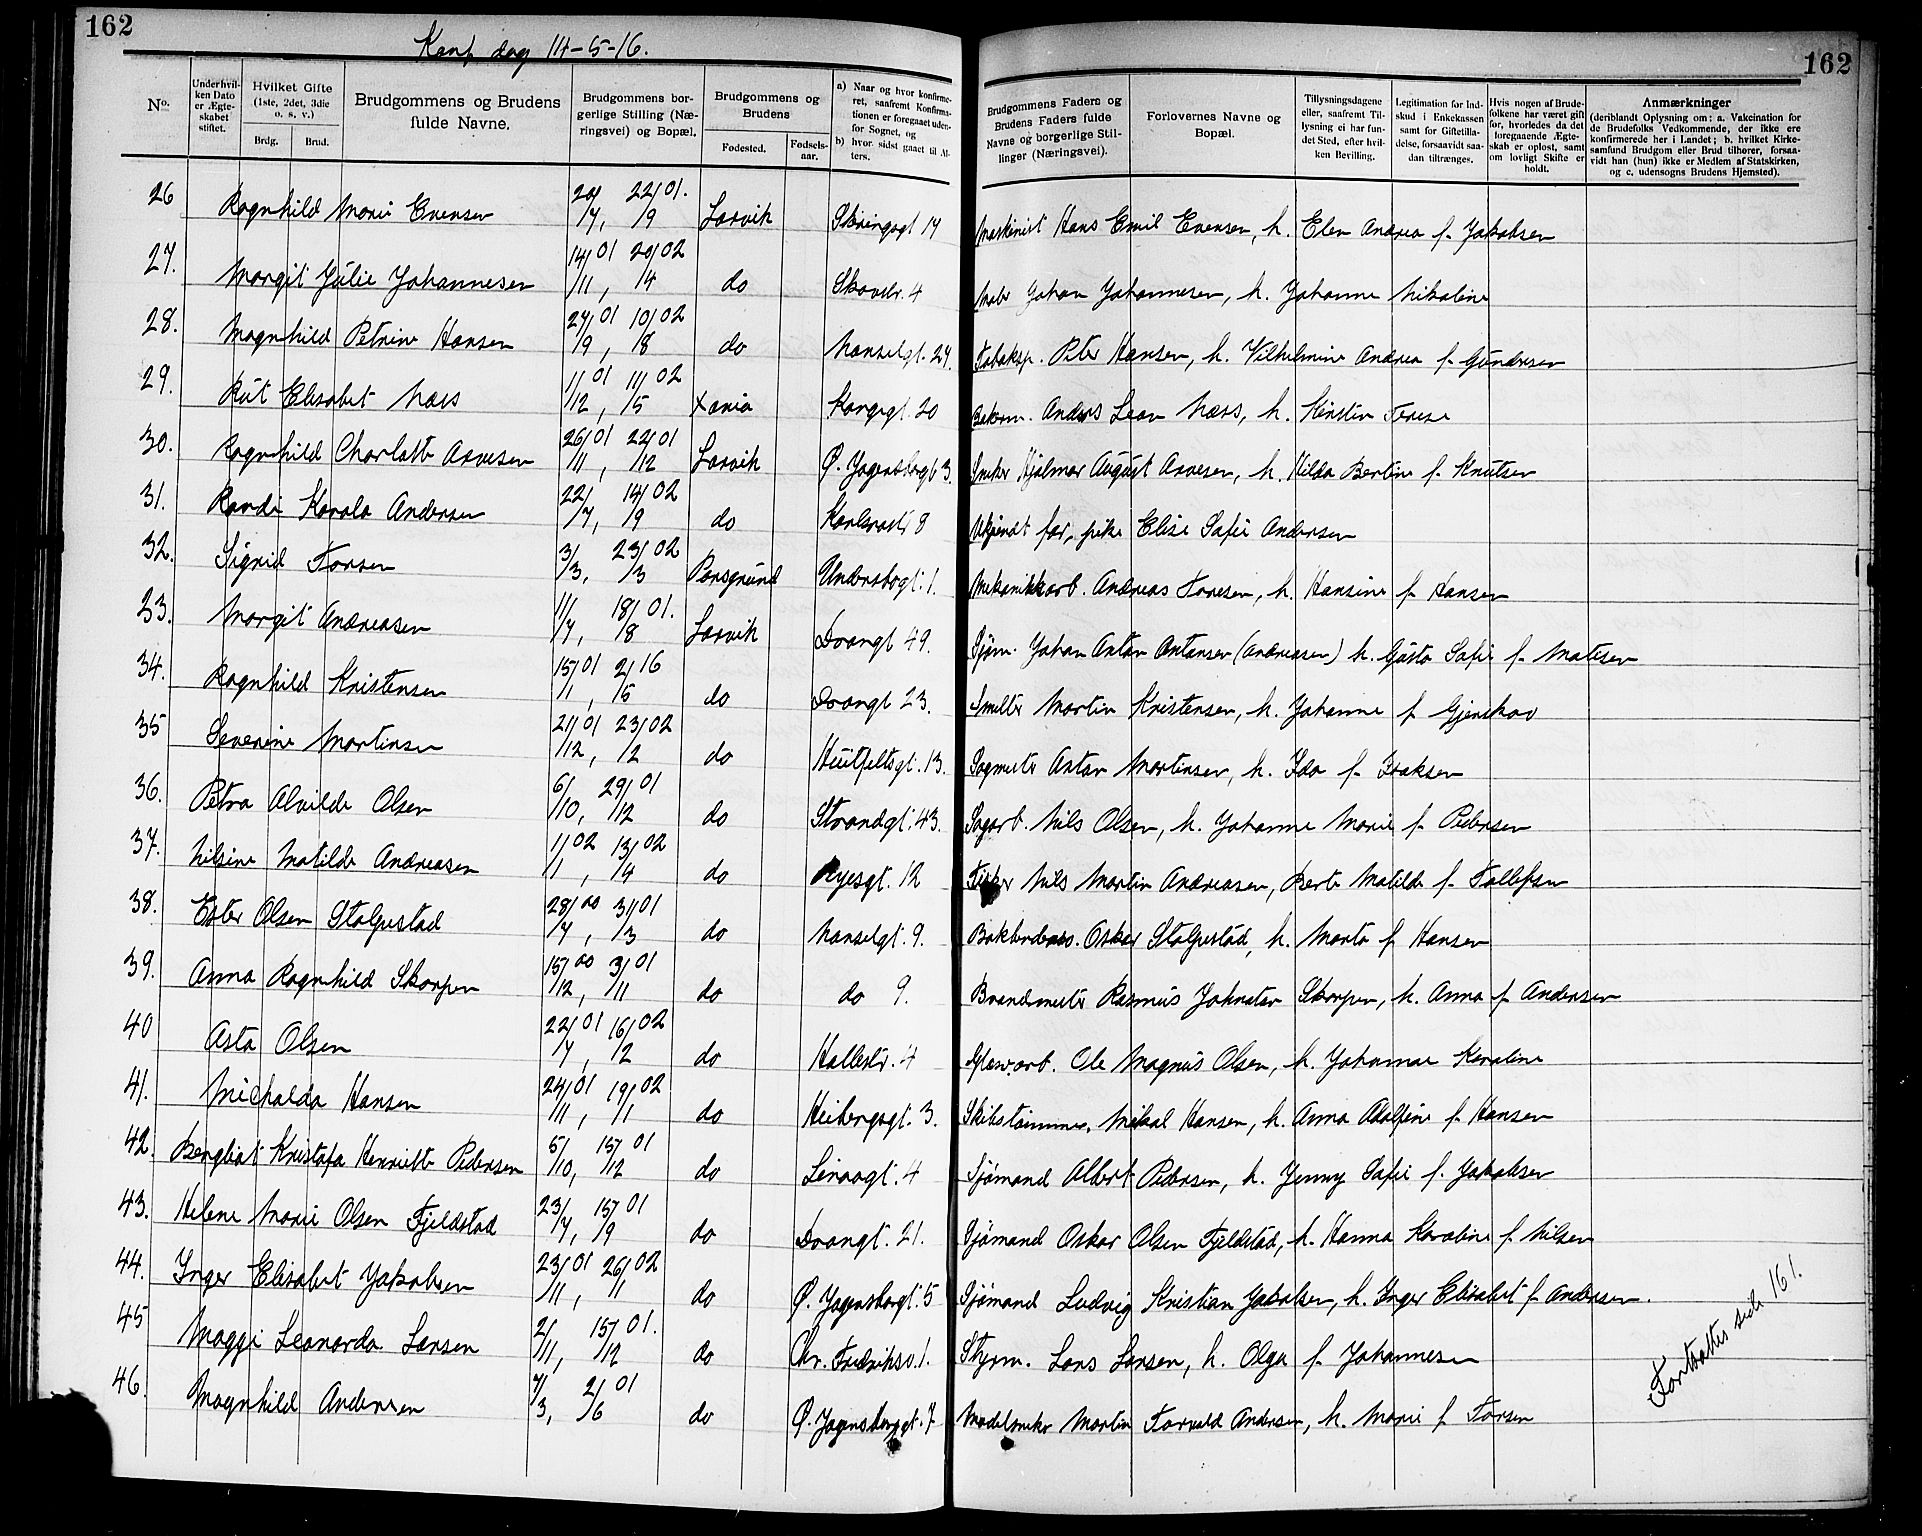 162
Konf. dag 14-5-16.
162
No.
Under hvilken Dato er Ægteskabet stiftet.
Hvilket Gifte (1ste, 2det, 3die o. s. v.)
Brdg.
Brud.
Brudgommens og Brudens fulde Navne.
Brudgommens borgerlige Stilling (Næringsvei) og Bopæl.
Brudgommens og Brudens
Fødested.
Fødselsaar.
a) Naar og hvor konfirmeret, saafremt Konfirmationen er foregaaet udenfor Sognet, og
b) hvor sidst gaaet til Alters.
Brudgommens Faders og Brudens Faders fulde Navne og borgerlige Stillinger (Næringsvei).
Forlovernes Navne og Bopæl.
Tillysningsdagene eller, saafremt Tillysning ei har fundet Sted, efter hvilken Bevilling.
Legitimation for Indskud i Enkekassen samt for Giftetilladelse, forsaavidt saadan tiltrænges.
Hvis nogen af Brudefolkene har været gift før, hvorledes da det foregaaende Ægteskab er opløst, samt om lovligt Skifte er holdt.
Anmærkninger
(deriblandt Oplysning om: a. Vakcination for de Brudefolks Vedkommende, der ikke ere konfirmerede her i Landet; b. hvilket Kirkesamfund Brudgom eller Brud tilhører, forsaavidt han (hun) ikke er Medlem af Statskirken, og c. udensogns Brudens Hjemsted).
26 Ragnhild Marie Evensen 20/7, 22/9 01. Larvik Skiringsgt 14 Maskinist Hans Emil Evensen, h. Elen Andrea f. Jakobsen
27. Margit Julie Johannesen 14/11 01, 20/4 02 do Skovstr. 4 Maler Johan Johannesen, h. Johanne Nikoline
28. Magnhild Petrine Hansen 24/9 01, 10/8 02 do Nanselgt. 24. Fabaksp. Peter Hansen, h. Vilhelmine Andrea f. Gundersen
29. Rut Elisabet Næss 11/12 01, 11/5 02 Xania Kongegt 20 Bakerm. Anders Leon Næss, h. Kirstin Terese
30. Ragnhild Charlotte Arvesen 26/11 01, 22/12 01 Larvik Ø. Jegersborggt 3. Sneker Hjalmar August Arvesen, h. Hilda Bertine f. Knutsen
31. Randi Karola Andersen 22/7, 14/9 02 do 8 Ukjendt far, pike Elise Sofie Andersen
32. Sigrid Torsen 3/3, 23/3 02 Porsgrund 1. Mekanikkarb. Andreas Toresen, h. Hansine f. Hansen
23. Margit Andreasen 11/7, 18/8 01. Larvik Dronngt 49. Sjøm. Johan Anton Antonsen (Andreasen) h. Gusta Sofie f. Matisen
34. Ragnhild Kristensen 15/1 01, 2/5 16 do Dronngt 23. Smelter Martin Kristensen, h. Johanne f. Gjerskov
35 Severine Martinsen 21/12 01, 23/2 02 do Huitfeltsgt. 13. Sagmester Anton Martinsen, h. Ida f. Isaksen
36. Petra Alvilde Olsen 6/10, 29/12 01 do Strandgt. 43. Sagarb. Nils Olsen, h. Johanne Marie f. Pedersen
37. Nilsine Matilde Andreasen 1/1 02, 13/4 02 do Ryesgt. 12 Fisker Nils Martin Andreasen, Berte Matilde f. Tollefsen
38. Ester Olsen Stolpestad 28/7 00, 31/3 01 do Nanselgt. 9. Oskar Stolpestad, h. Marta f. Hansen
39. Anna Ragnhild Skorpen 15/12 00, 3/11 01 do do 9. Brandmester Rasmus Johnatan Skorpen, h. Anna f. Andersen
40 Asta Olsen 22/7 01, 16/2 02 do Hallestr. 4 Glasv.arb. Ole Magnus Olsen, h. Johanne Karoline
41. Michalda Hansen 24/11 01, 19/1 02 do Heibergsgt. 3. Skibstømmer. Mikal Hansen, h. Anna Adolfine f. Hansen
42. Bergliot Kristofa Henriette Pedersen 5/10, 15/12 01 do 4 Sjømand Albert Pedersen, h. Jenny Sofie f. Jakobsen
43. Helene Marie Olsen Fjeldstad 23/7, 15/9 01 do Dronngt. 21. Sjømand Oskar Olsen Fjeldstad, h. Hanna Karoline f. Nilsen
44. Inger Elisabet Jakobsen 23/11 01, 26/11 02 do Ø. Jegersborgt. 5 Sjømand Ludvig Kristian Jakobsen, h. Inger Elisabet f. Andersen.
45 Maggi Leonarda Larsen 2/11, 15/12 01. do Chr. Fredriksv. 1. Styrm. Lars Larsen, h. Olga f. Johannesen
46. Magnhild Andersen 7/3, 2/6 01 do Ø. Jegersborggt. 7 Modelsneker Martin Torvald Andersen, h. Marie f. Torsen
Fortsættes side 161.